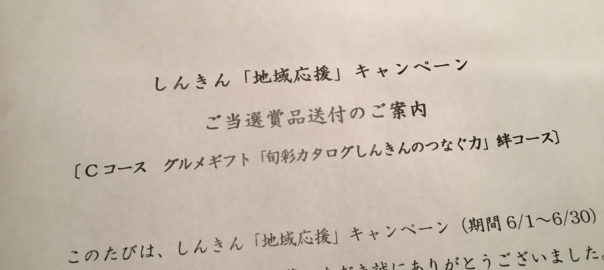 しんきん「地域応援」キャンペーン
ご当選賞品送付のご案内
［Cコース　グルメギフト「旬彩カタログしんきんのつなぐ力」絆コース］
このたびは、しんきん「地域応援」キャンペーン（期間 6/1～6/30）
だき誠にありがとうございました。